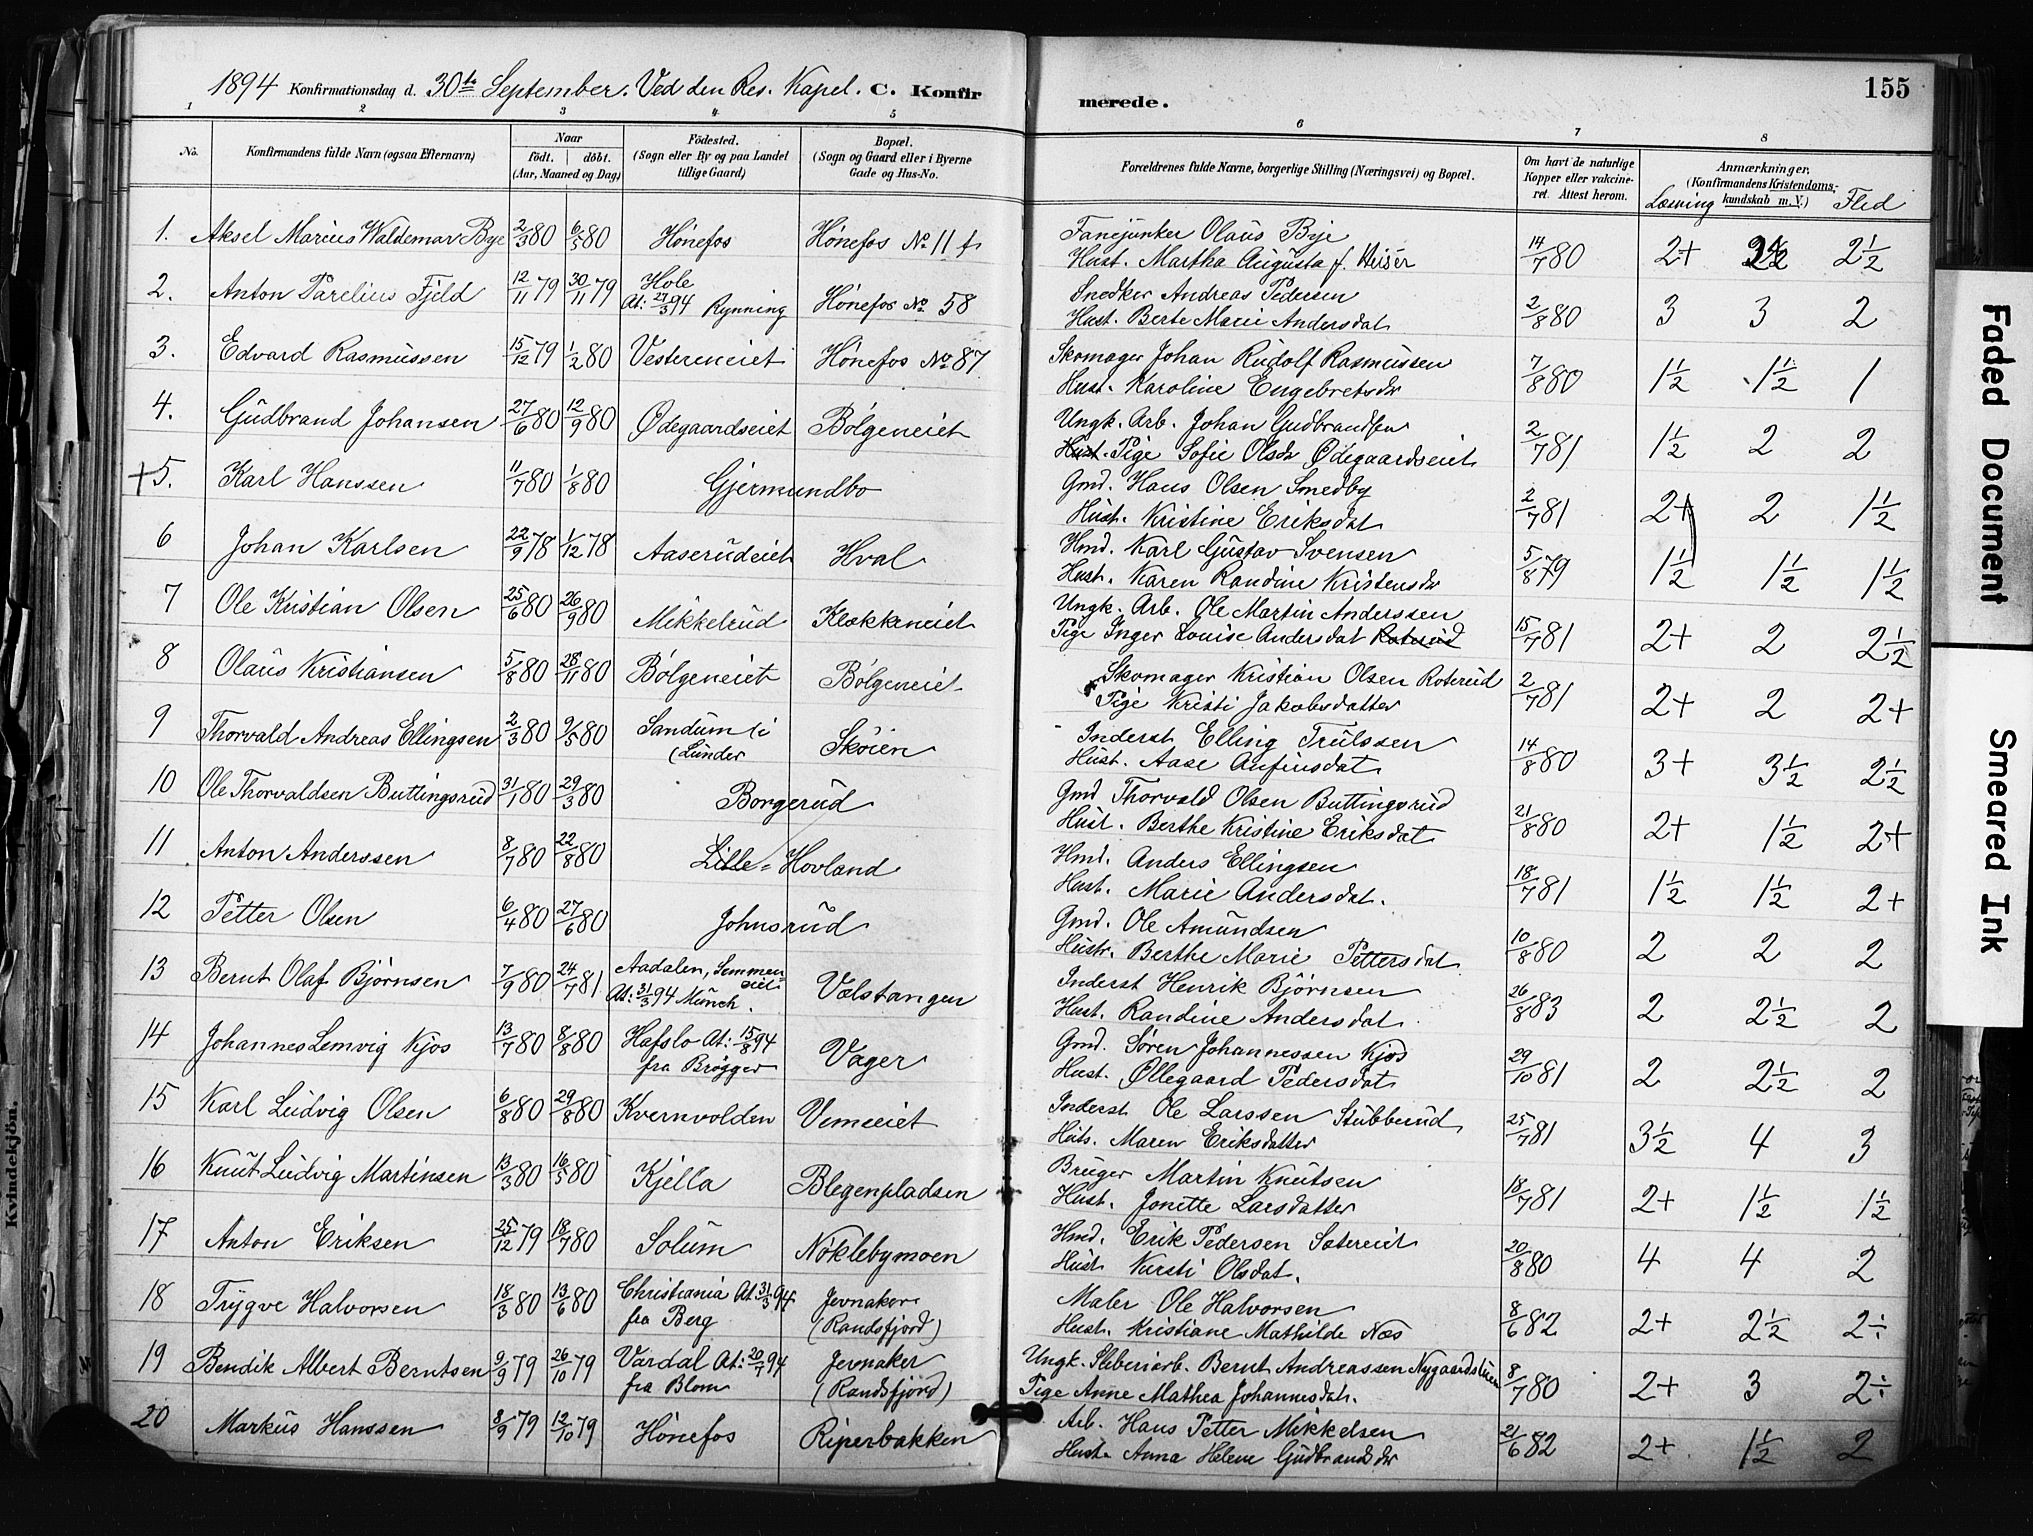 1894 Konfirmationsdag d. 30te September. Ved den Res. Kapel. C. Konfir
merede. 155
1 2 3 4 5 6 7 8
No. Konfirmandens fulde Navn (ogsaa Efternavn) Naar födt. döbt. (Aar, Maaned og Dag) Födested. (Sogn eller By og paa Landet tillige Gaard) Bopæl. (Sogn og Gaard eller i Byerne Gade og Hus-No.
Forældrenes fulde Navne, borgerlige Stilling (Næringsvei) og Bopæl. Om havt de naturlige Kopper eller vakcineret. Attest herom. Anmærkninger. (Konfirmandens Kristendomskundskab m. V.) Læsning Flid
1. Aksel Marius Waldemar Bye 2/3 80 6/5 80 Hönefos Hönefos No 11 f
Fanejunker Olaus Bye
Hust. Martha Augusta f. Heiser 14/7 80 2+ 2½
2. Anton Parelius Fjeld 12/11 79 30/11 79 Hole
At: 27/3 94 Rynning Hönefos No 58
Snedker Andreas Pedersen
Hust. Berte Marie Andersdat 2/8 80 3 3 2
3. Edvard Rasmussen 15/12 79 1/2 80 Vesterneiet Hönefos No 87
Skomager Johan Rudolf Rasmussen
Hust. Karoline Engebretsdr 7/8 80 1½ 1½ 1
4. Gudbrand Johansen 27/6 80 12/9 80 Ødegaardseiet Bølgeneiet
Ungk. Arb. Johan Gudbrandsen
Hust. Pige Sofie Olsdr Ødegaardseiet 2/7 81 1½ 2 2
+5. Karl Hanssen 11/7 80 1/8 80 Gjermundbo
Gmd. Hans Olsen Smedby
Hust. Kristine Eriksdat 2/7 81 2+ 2 1½
6 Johan Karlsen 22/9 78 1/12 78 Aaserudeiet Hval
Hmd. Karl Gustav Svensen
Hust. Karen Randine Kristensdr 5/8 79 1½ 1½ 1½
7 Ole Kristian Olsen 25/6 80 26/9 80 Mikkelrud Klækkeneiet
Ungk. Arb. Ole Martin Anderssen
Pige Inger Louise Andersdat Roterud 15/7 81 2+ 2 2½
8 Olaus Kristiansen 5/8 80 28/11 80 Bølgeneiet Bølgeneiet
Skomager Kristian Olsen Roterud
Pige Kristi Jakobsdatter 2/7 81 2+ 2 2+
9 Thorvald Andreas Ellingsen 2/3 80 9/5 80 Sandum i
(Lunder Skøien
Inderst Elling Trulssen
Hust. Aase Anfinsdat 14/8 80 3+ 3½ 2½
10 Ole Thorvaldsen Buttingsrud 31/1 80 29/3 80 Borgerud
Gmd Thorvald Olsen Buttingsrud
Hust. Berthe Kristine Eriksdat 21/8 80 2+ 1½ 2+
11 Anton Anderssen 8/7 80 22/8 80 Lille=Hovland
Hmd. Anders Ellingsen
Hust. Marie Andersdat. 18/7 81 1½ 1½ 2+
12 Petter Olsen 6/4 80 27/6 80 Johnsrud
Gmd. Ole Amundsen
Hustr. Berthe Marie Pettersdat 10/8 80 2 2 2
13 Bernt Olaf Bjørnsen 7/9 80 24/7 81 Aadalen, Semmeneiet
At: 31/3 94 Münch. Vælstangen
Inderst Henrik Björnsen
Hust. Randine Andersdat. 26/8 83 2 2½ 2
14 Johannes Lemvig Kjos 13/7 80 8/8 80 Hafslo At: 15/8 94
fra Brøgger Vager
Gmd. Søren Johannessen Kjos
Hust. Øllegaard Pedersdat 29/10 81 2 2½ 2
15 Karl Ludvig Olsen 6/8 80 29/8 80 Kvernvolden Vemeeiet
Inderst Ole Larssen Stubberud
Huts. Maren Eriksdatter 25/7 81 3½ 4 3
16 Knut Ludvig Martinsen 13/3 80 16/5 80 Kjella Blegenpladsen
Bruger Martin Knutsen
Hust. Jonette Larsdatter 18/7 81 2+ 1½ 1½
17 Anton Eriksen 25/12 79 18/7 80 Solum Nøklebymoen
Hmd. Erik Pedersen Sætereiet
Hust Kirsti Olsdat. 20/8 80 4 4 2
18 Trygve Halvorsen 18/3 80 13/6 80 Christiania At 31/3 94
fra Berg Jevnaker
(Randsfjord)
Maler Ole Halvorsen
Hust. Kristiane Mathilde Næs 8/6 82 2+ 2½ 2÷
19 Bendik Albert Berntsen 9/9 79 26/10 79 Vardal At: 20/7 94
fra Blom Jevnaker
(Randsfjord)
Ungk. Sliberiarb. Bernt Andreassen
Pige Anne Mathea Johannesdat. 8/7 80 2+ 3 2÷
20 Markus Hanssen 8/9 79 12/10 79 Hönefos Riperbakken
Arb. Hans Petter Mikkelsen
Hust. Anna Helene Gudbrandsdr 21/6 82 2+ 1½ 2
Kvindekjön.
Faded Document
Smeared Ink